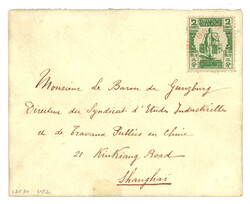 2 2
Monsieur Le Baron de Gunzburg
Directeur des Syndicat d'Etudes Industrielles
et de Travaux Publics en Chine
21 KiuKiang Road
Shanghai